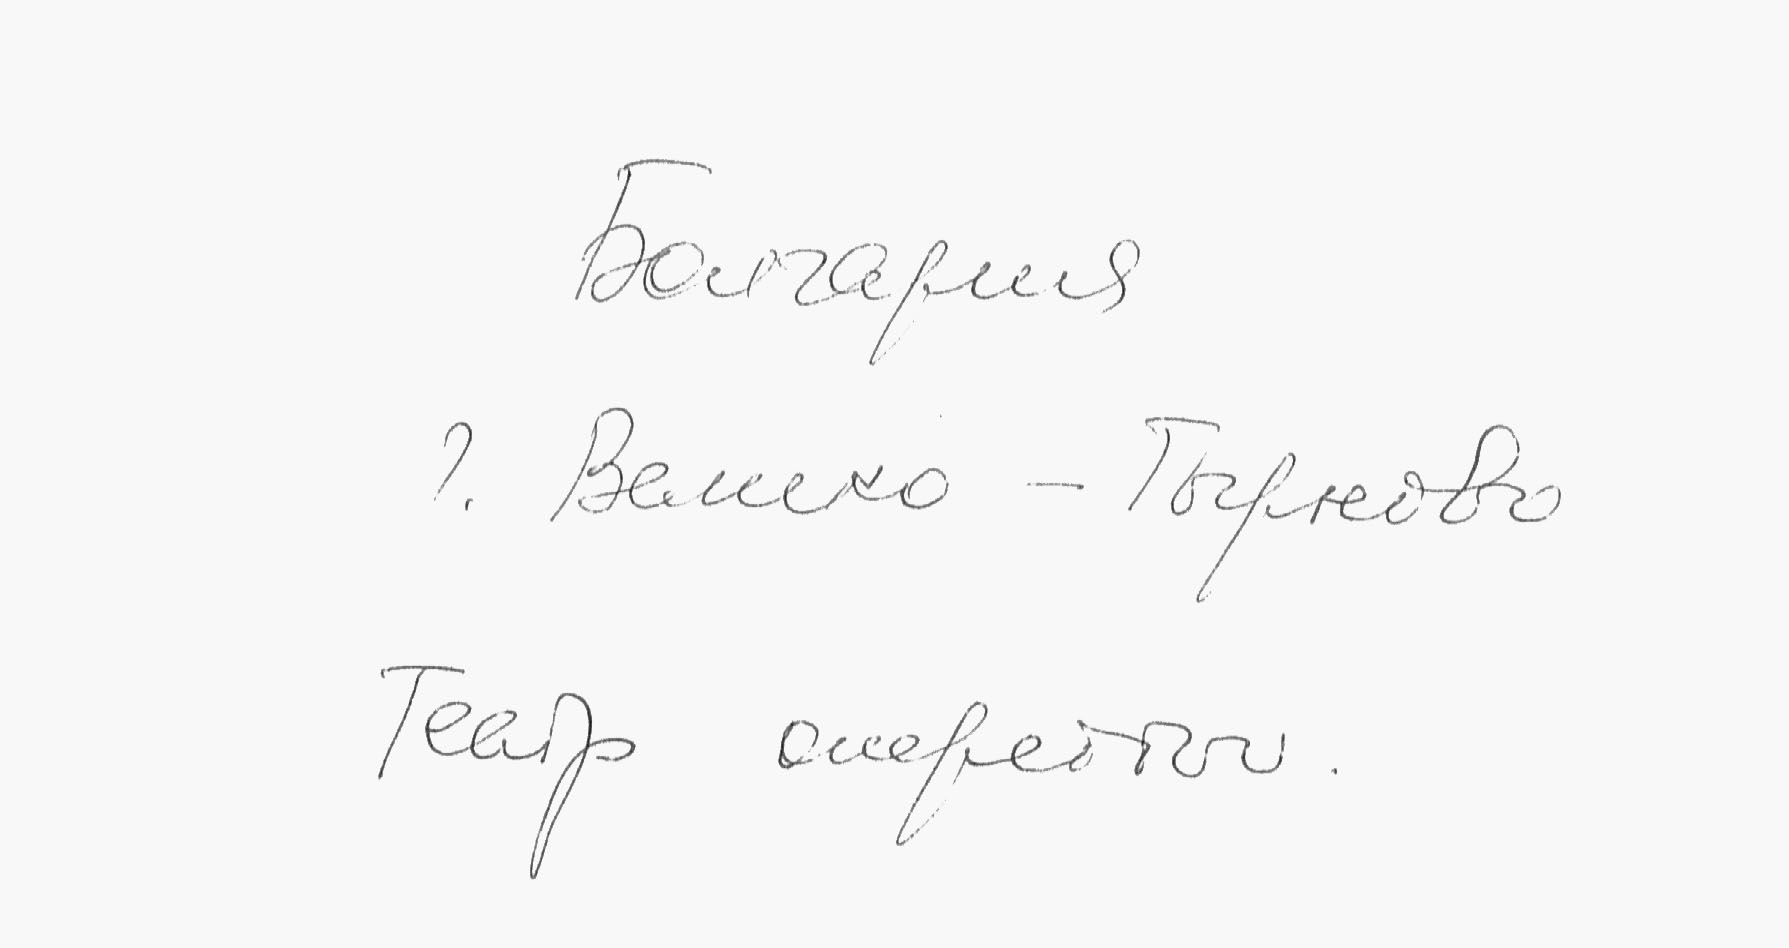 Болгария
г. Велико - Тырново
Театр оперетты.